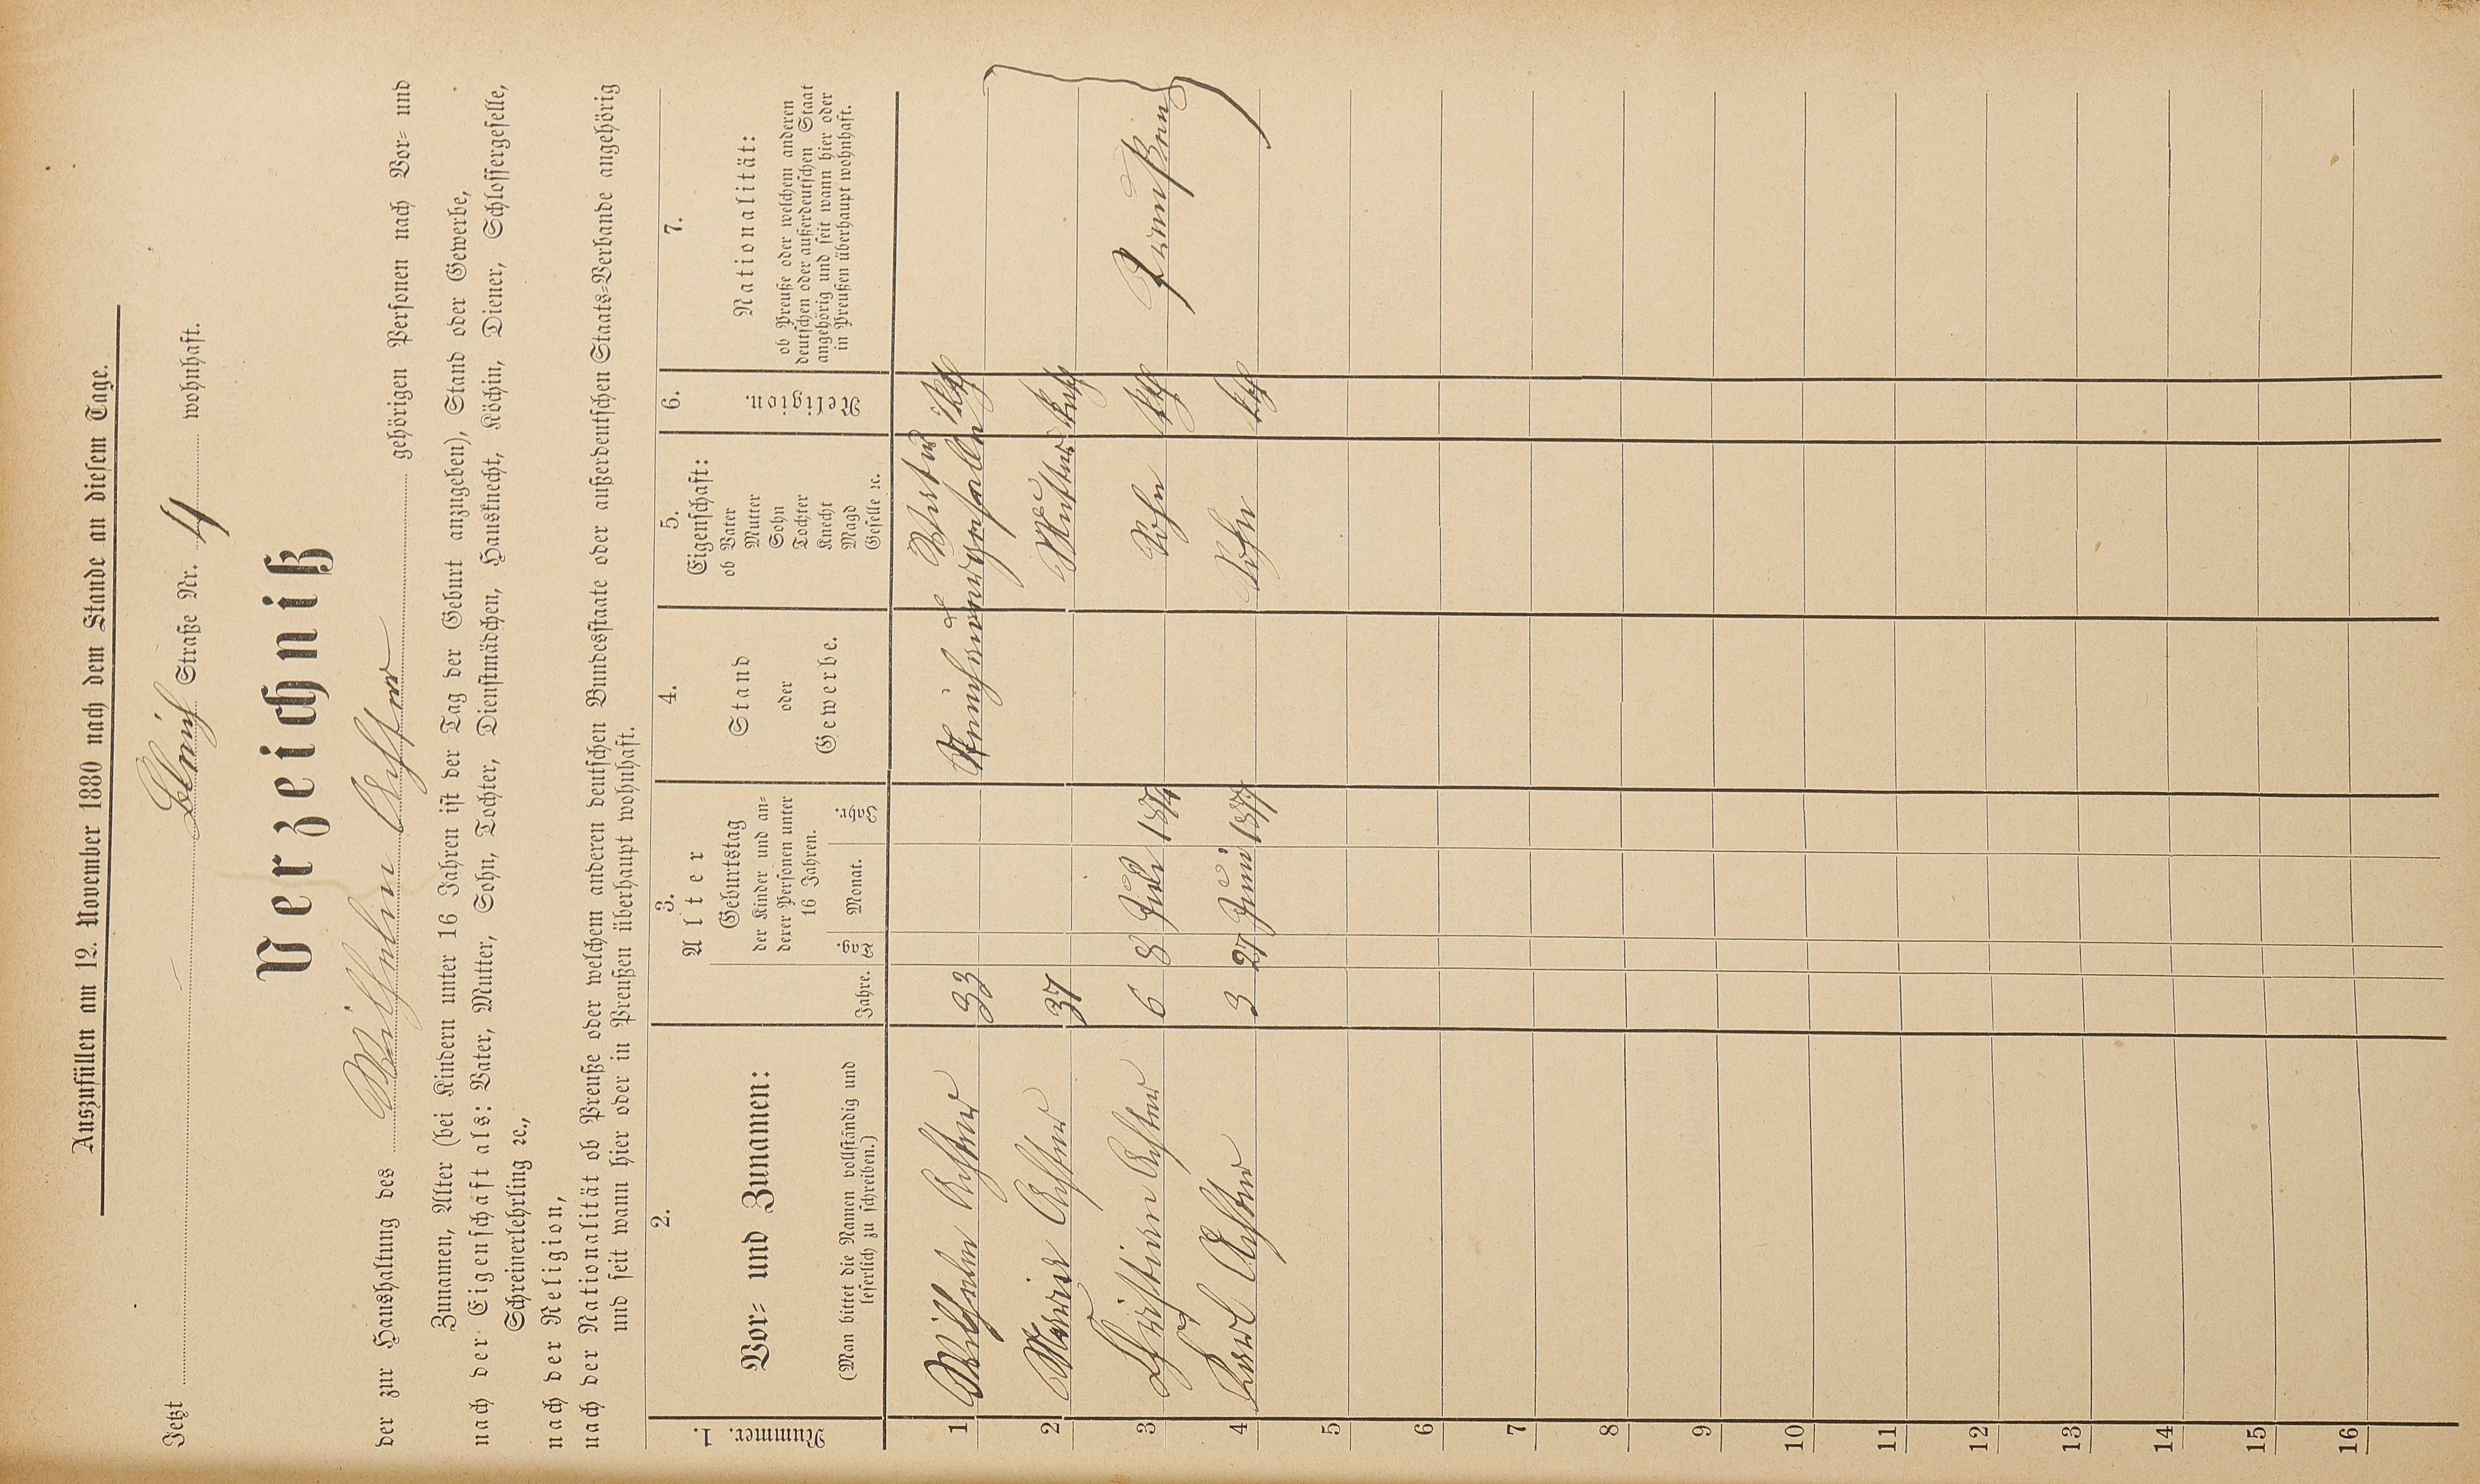 Auszufüllen am 12. November 1880 nach dem Stande an diesem Tage.
Jetzt Bleich Straße Nr. 4 wohnhaft.
Verzeichniß
der zur Haushaltung des Wilhelm Achter gehörigen Personen nach Vor= und
Zunamen, Alter (bei Kindern unter 16 Jahren ist der Tag der Geburt anzugeben), Stand oder Gewerbe,
nach der Eigenschaft als: Vater, Mutter, Sohn, Tochter, Dienstmädchen, Hausknecht, Köchin, Diener, Schlossergeselle,
Schreinerlehrling ꝛc.,
nach der Religion,
nach der Nationalität ob Preuße oder welchem anderen deutschen Bundesstaate oder außerdeutschen Staats=Verbande angehörig
und seit wann hier oder in Preußen überhaupt wohnhaft.
1. Nummer.
2. Vor= und Zunamen:
(Man bittet die Namen vollständig und
leserlich zu schreiben.)
3. Alter
Jahre.
Geburtstag
der Kinder und an=
derer Personen unter
16 Jahren.
Tag. Monat. Jahr.
4. Stand
oder
Gewerbe.
5. Eigenschaft:
ob Vater
Mutter
Sohn
Tochter
Knecht
Magd
Geselle ꝛc.
6. Religion.
7. Nationalität:
ob Preuße oder welchem anderen
deutschen oder außerdeutschen Staat
angehörig und seit wann hier oder
in Preußen überhaupt wohnhaft.
1 Wilhelm Achter 33 Vater Kth
2 Maria Achter 37 Mutter Kath
3 Christian Achter 6 8 Juli 1874 Sohn Kth Preußen
4 Karl Achter 3 27 Juni 1877 Sohn Kth
5
6
7
8
9
10
11
12
13
14
15
16